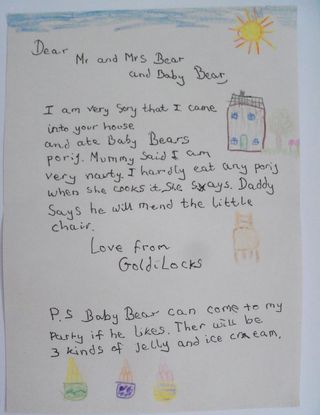 Dear
Mr and Mrs Bear
and Baby Bear,
I am very Sory that I came
into your house
and ate Baby Bears
porij. Mummy Said I am
very narty. I hardly eat any porij
when she cooks it She says. Daddy
Says he will mend the little
chair.
Love from
Goldi-Locks
P.S Baby Bear can come to my
Party if he likes. Ther will be
3 kinds of Jelly and ice cream,